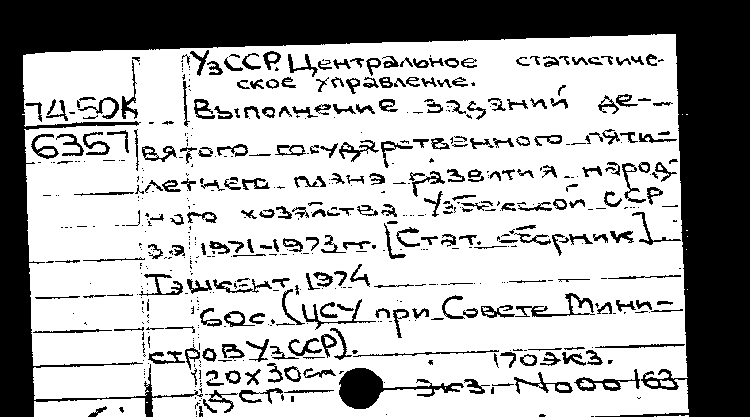 УзССР. Центральное статистиче-
ское управление.
74-50К
6357
Выполнение заданий де-
вятого государственного пяти-
летнего плана развития народ-
ного хозяйства Узбекской ССР
за 1971-1973 гг. [Стат. сборник].
Ташкент, 1974
60с. (ЦСУ при Совете Мини-
стров УзССР).
170 экз.
20х30см
ДСП. экз. N000163